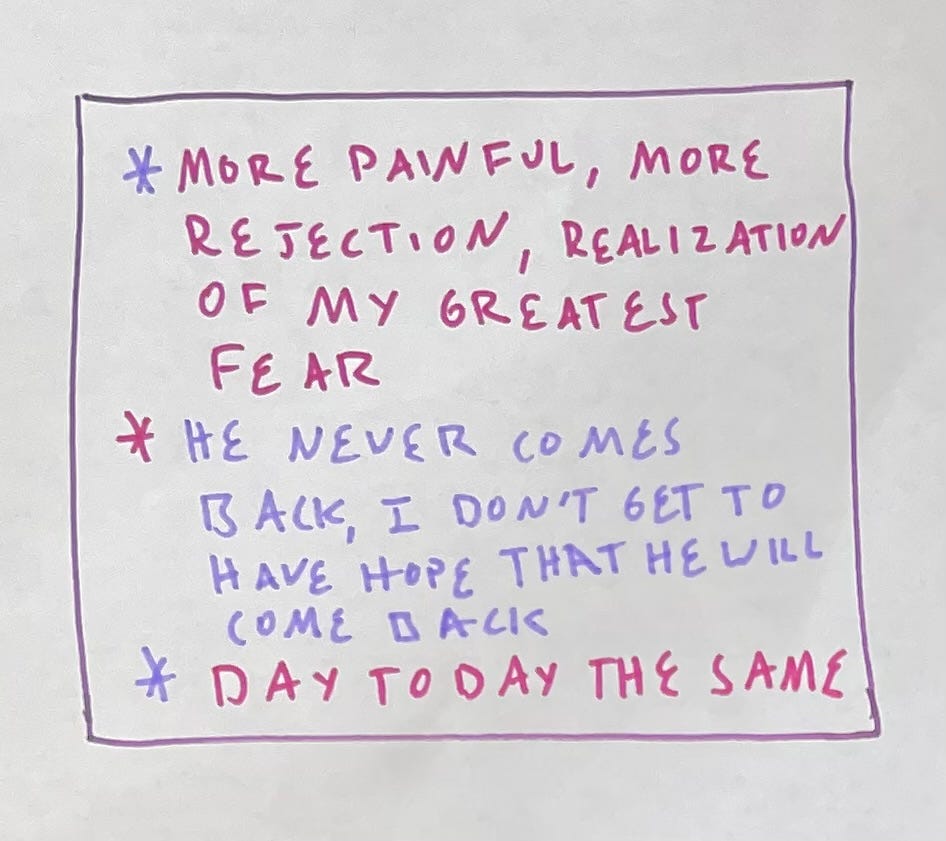 * MORE PAINFUL, MORE
REJECTION, REALIZATION
OF MY GREATEST
FEAR
* HE NEVER COMES
BACK, I DON'T GET TO
HAVE HOPE THAT HE WILL
COME BACK
* DAY TO DAY THE SAME